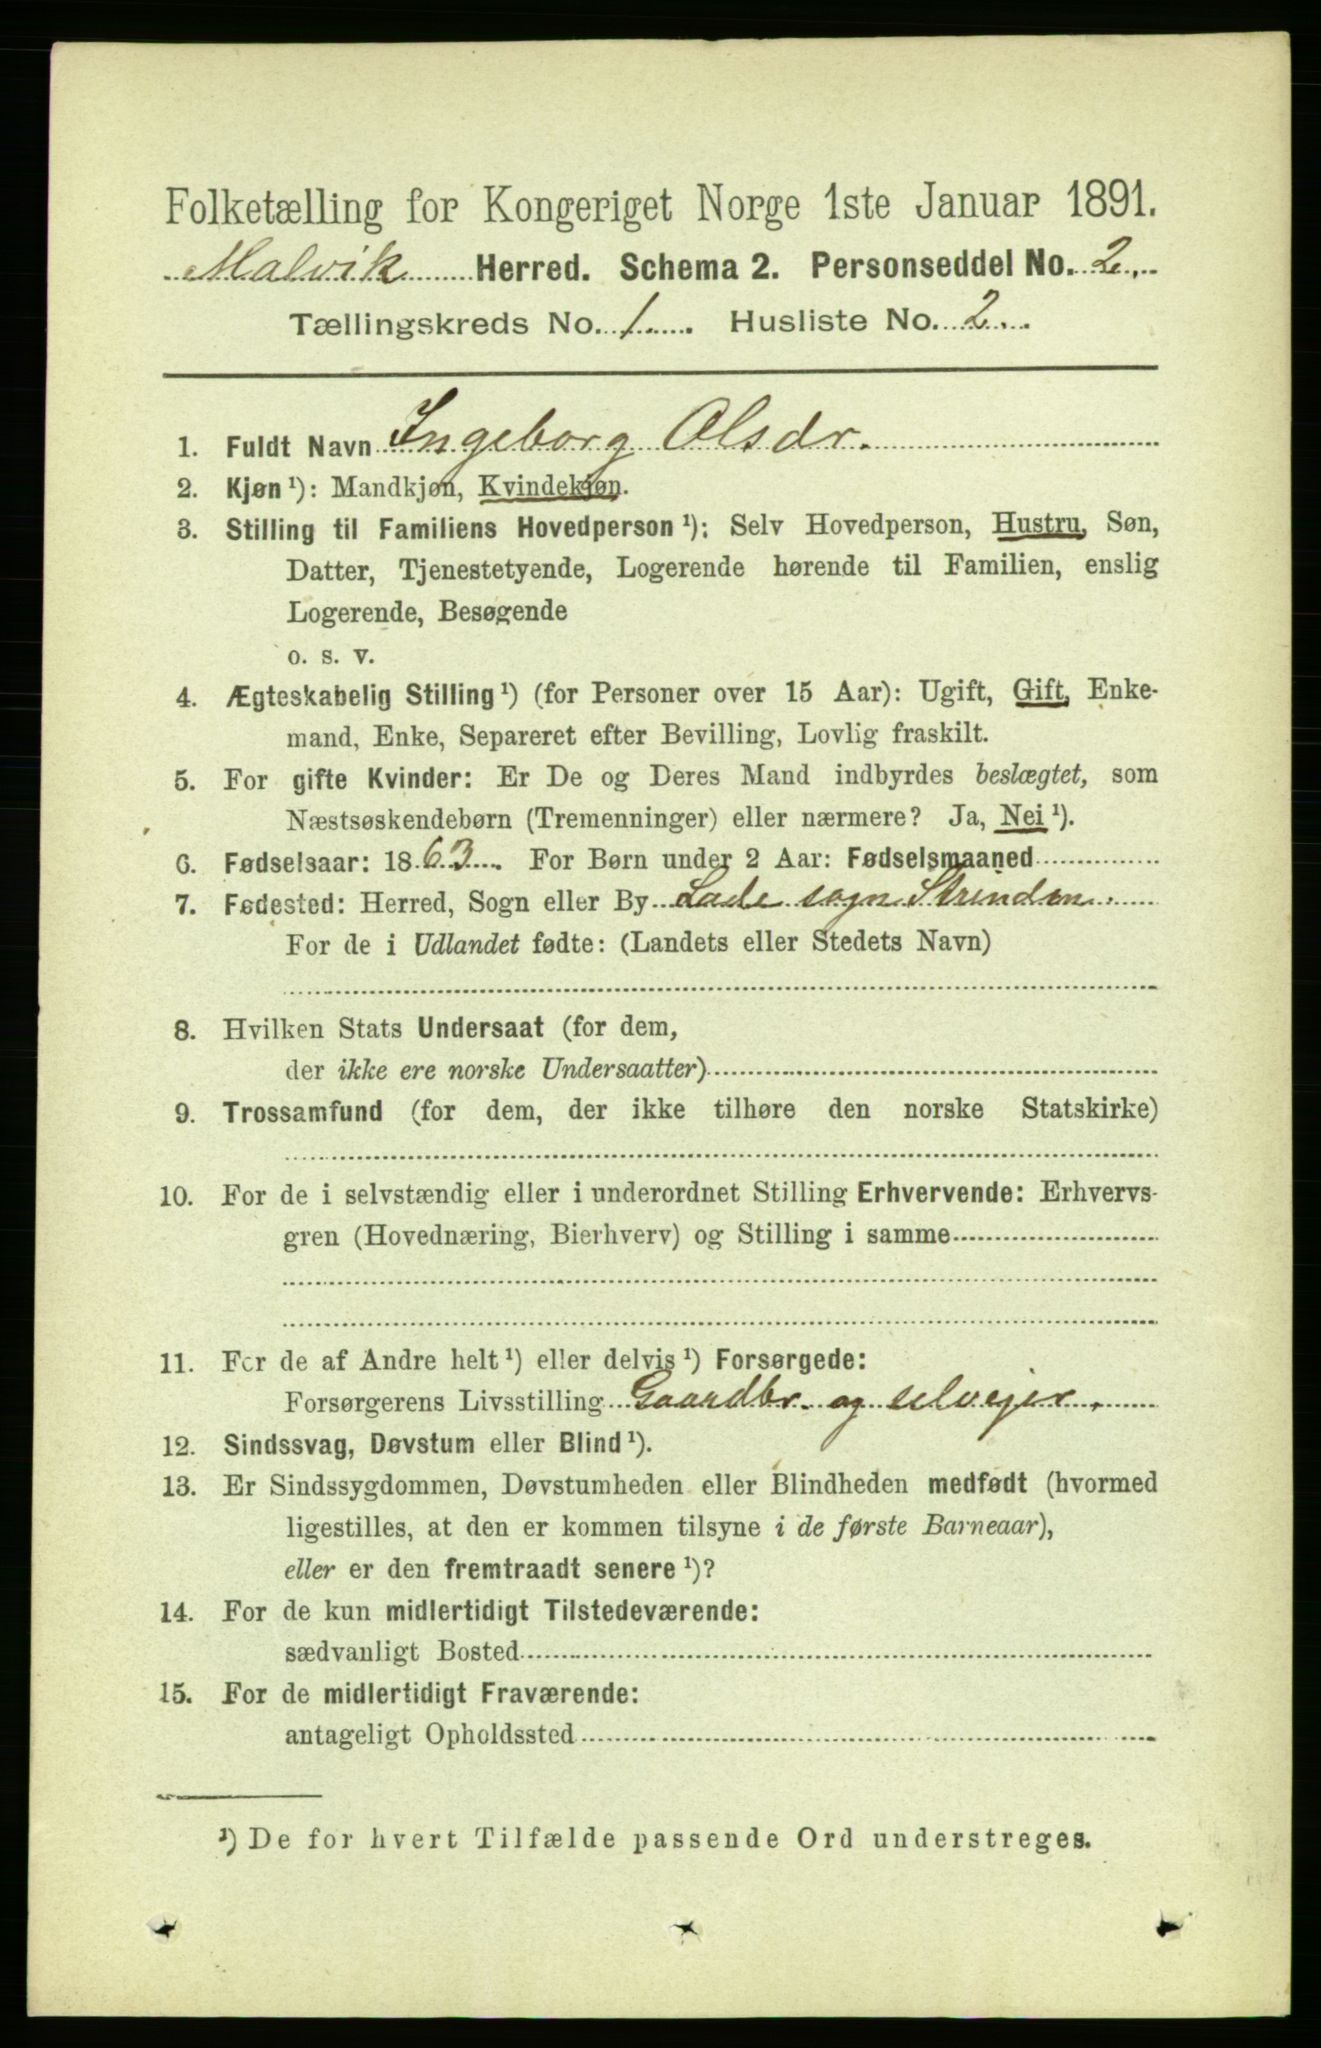 Folketælling for Kongeriget Norge 1ste Januar 1891.
Malvik Herred. Schema 2. Personseddel No. 2.
Tællingskreds No. 1. Husliste No. 2.
1. Fuldt Navn Ingeborg Olsdr.
2. Kjøn ¹): Mandkjøn, Kvindekjøn.
3. Stilling til Familiens Hovedperson ¹): Selv Hovedperson, Hustru, Søn,
Datter, Tjenestetyende, Logerende hørende til Familien, enslig
Logerende, Besøgende
o. s. v.
4. Ægteskabelig Stilling ¹) (for Personer over 15 Aar): Ugift, Gift, Enke-
mand, Enke, Separeret efter Bevilling, Lovlig fraskilt.
5. For gifte Kvinder: Er De og Deres Mand indbyrdes beslægtet, som
Næstsøskendebørn (Tremenninger) eller nærmere? Ja, Nei ¹).
6. Fødselsaar: 1863. For Børn under 2 Aar: Fødselsmaaned
7. Fødested: Herred, Sogn eller By Lade sogn Strinden.
For de i Udlandet fødte: (Landets eller Stedets Navn)
8. Hvilken Stats Undersaat (for dem,
der ikke ere norske Undersaatter)
9. Trossamfund (for dem, der ikke tilhøre den norske Statskirke)
10. For de i selvstændig eller i underordnet Stilling Erhvervende: Erhvervs-
gren (Hovednæring, Bierhverv) og Stilling i samme
11. For de af Andre helt ¹) eller delvis ¹) Forsørgede:
Forsørgerens Livsstilling Gaardbr. og selvejer.
12. Sindssvag, Døvstum eller Blind ¹).
13. Er Sindssygdommen, Døvstumheden eller Blindheden medfødt (hvormed
ligestilles, at den er kommen tilsyne i de første Barneaar),
eller er den fremtraadt senere ¹)?
14. For de kun midlertidigt Tilstedeværende:
sædvanligt Bosted
15. For de midlertidigt Fraværende:
antageligt Opholdssted
¹) De for hvert Tilfælde passende Ord understreges.